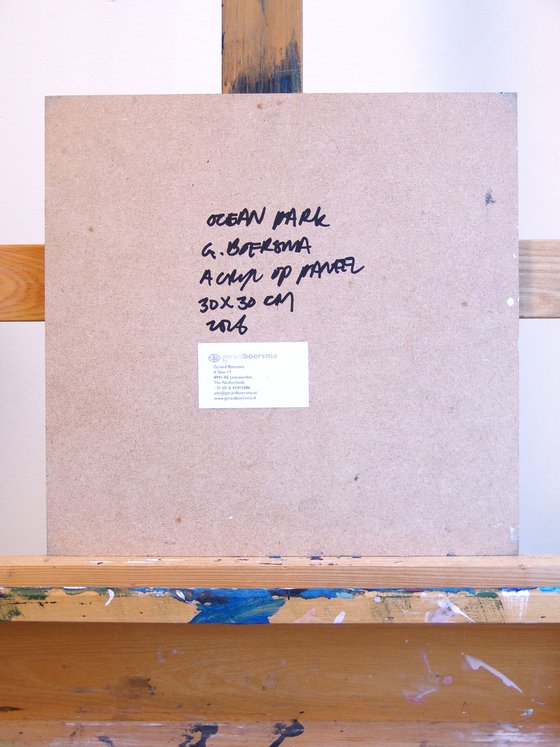 OCEAN PARK
G. BOERSMA
ACRYL OP PANEEL
30X30 CM
gerardboersma
Gerard Boersma
The Netherlands
info@gerardboersma.nl
www.gerardboersma.nl